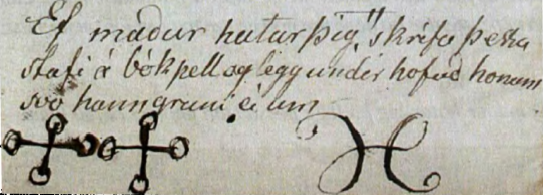 Ef madur hatar þig, skrifa þessa
stafi á bókfell og legg undir höfud honum
svo hann gruni ei um